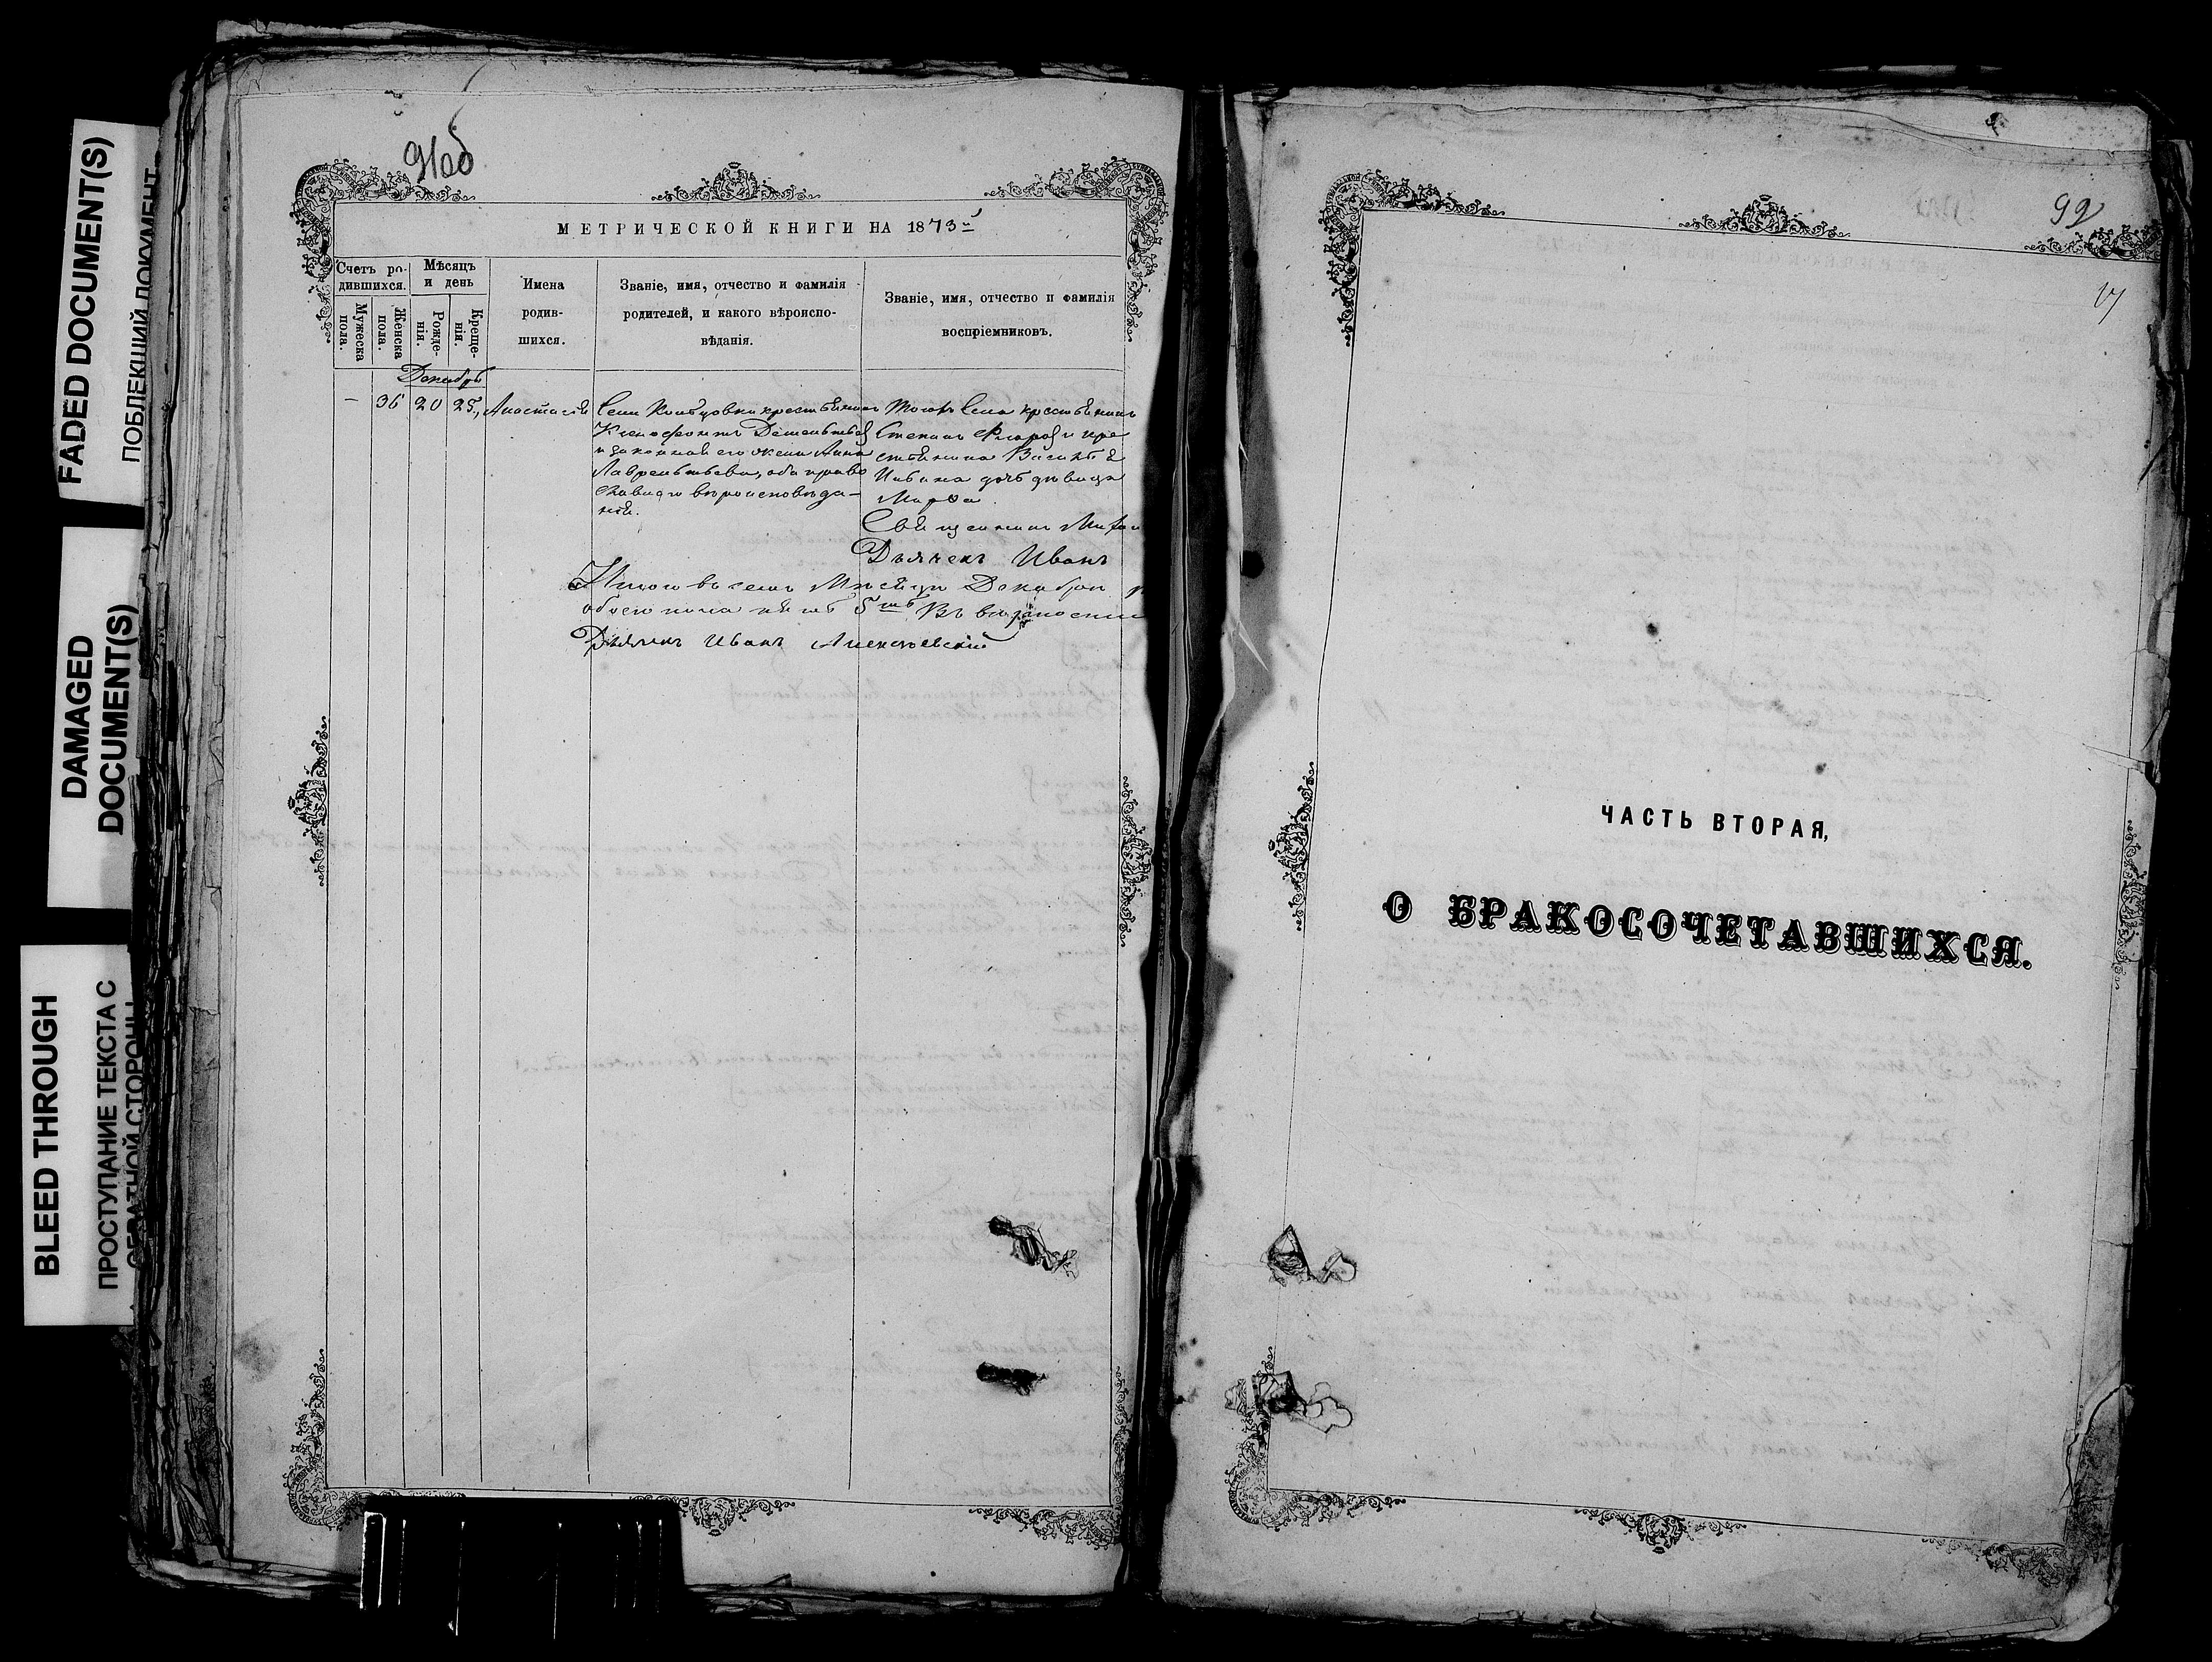 FADED DOCUMENT(S)
ПОБЛЕКШИЙ ДОКУМЕНТ
DAMAGED
DOCUMENT(S)
BLEED THROUGH
ПРОСТУПАНИЕ ТЕКСТА С
ОБРАТНОЙ СТОРОНЫ
91об
МЕТРИЧЕСКОЙ КНИГИ НА 1873
Счетъ ро-
дившихся.
Мужеска
пола.
Женска
пола.
Мѣсяцъ
и день
Рожде-
нія.
Креще-
нія.
Имена
родив-
шихся.
Званіе, имя, отчество и фамилія
родителей, и какого вѣроиспо-
вѣданія.
Званіе, имя, отчество и фамилія
воспріемниковъ.
Декабрь
— 36 20 25, Анастасія
крестьянинъ
и законная его жена Анна
Лаврентьева, оба право
славнаго вѣроисповѣда-
нія.
Тогожъ Села крестьянинъ
Степанъ и кре
стьянина
Ивана дочь дѣвица
Марѳа
Священникъ
Дьячекъ Иванъ
Итого въ семъ Мѣсяцѣ Декабрѣ
обоего пола
Дьячекъ Иванъ Алексѣевскій
92
ЧАСТЬ ВТОРАЯ,
О БРАКОСОЧЕТАВШИХСЯ.